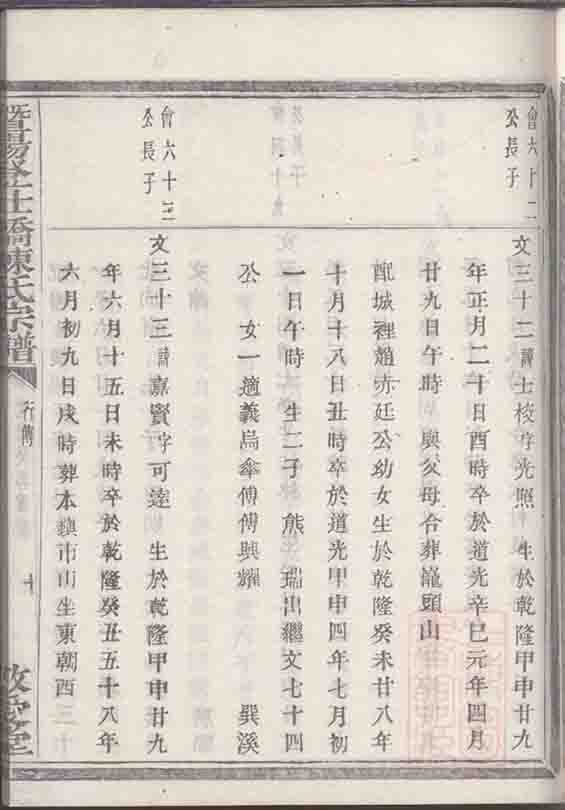 會六十二
公長子
文三十二諱士梭字光照 生於乾隆甲申廿九
年正月二十日酉時卒於道光辛巳元年四月
廿九日午時 與父母合葬龍頭山
配城裡趙亦廷公幼女生於乾隆癸未廿八年
十月十八日丑時卒於道光甲申四年七月初
一日午時 生二子 熊 瑞出繼文七十四
公 女一適義烏傘傅傅興耀 巽溪
會六十三
公長子
文三十三諱嘉賢字可達 生於乾隆甲申廿九
年六月十五日未時卒於乾隆癸丑五十八年
六月初九日戌時葬本鎮市山坐東朝西
暨陽 橋陳氏宗譜
行傳
十
敦 堂